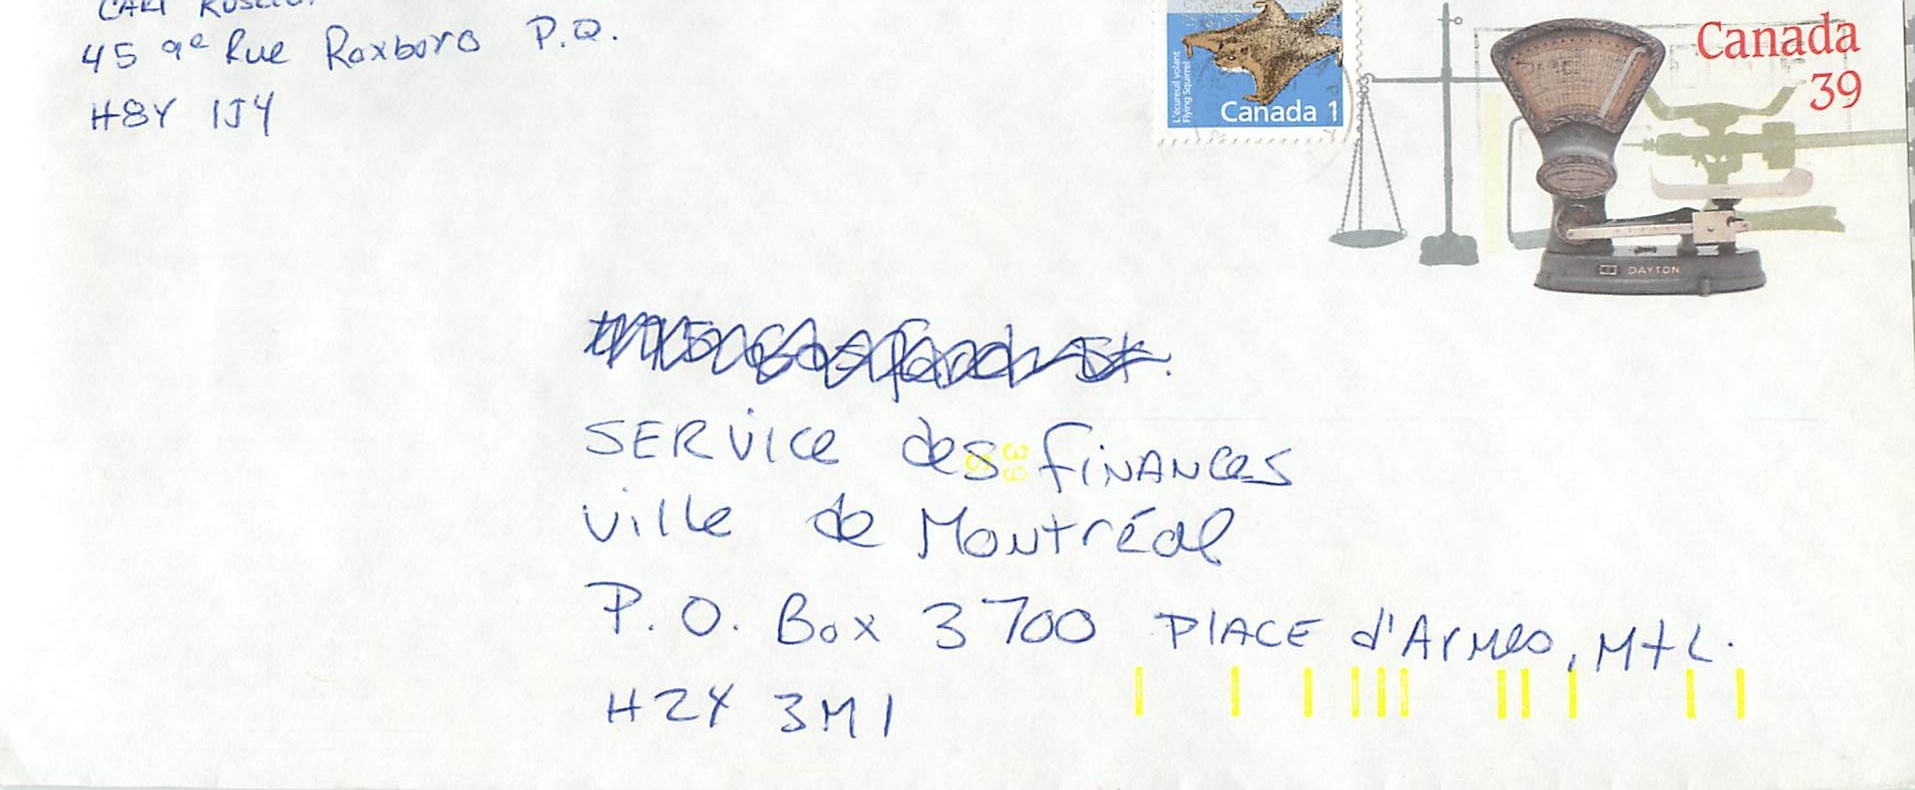 45 9e Rue Roxboro P.Q.
H8Y 1J4
L'écureuil volant
Flying Squirrel
Canada 1
Canada
39
DAYTON
St.
SERVICE des FINANCES
39
Ville de Montréal
P.O. Box 3700 PLACE d'Armes, Mtl.
H2Y 3M1